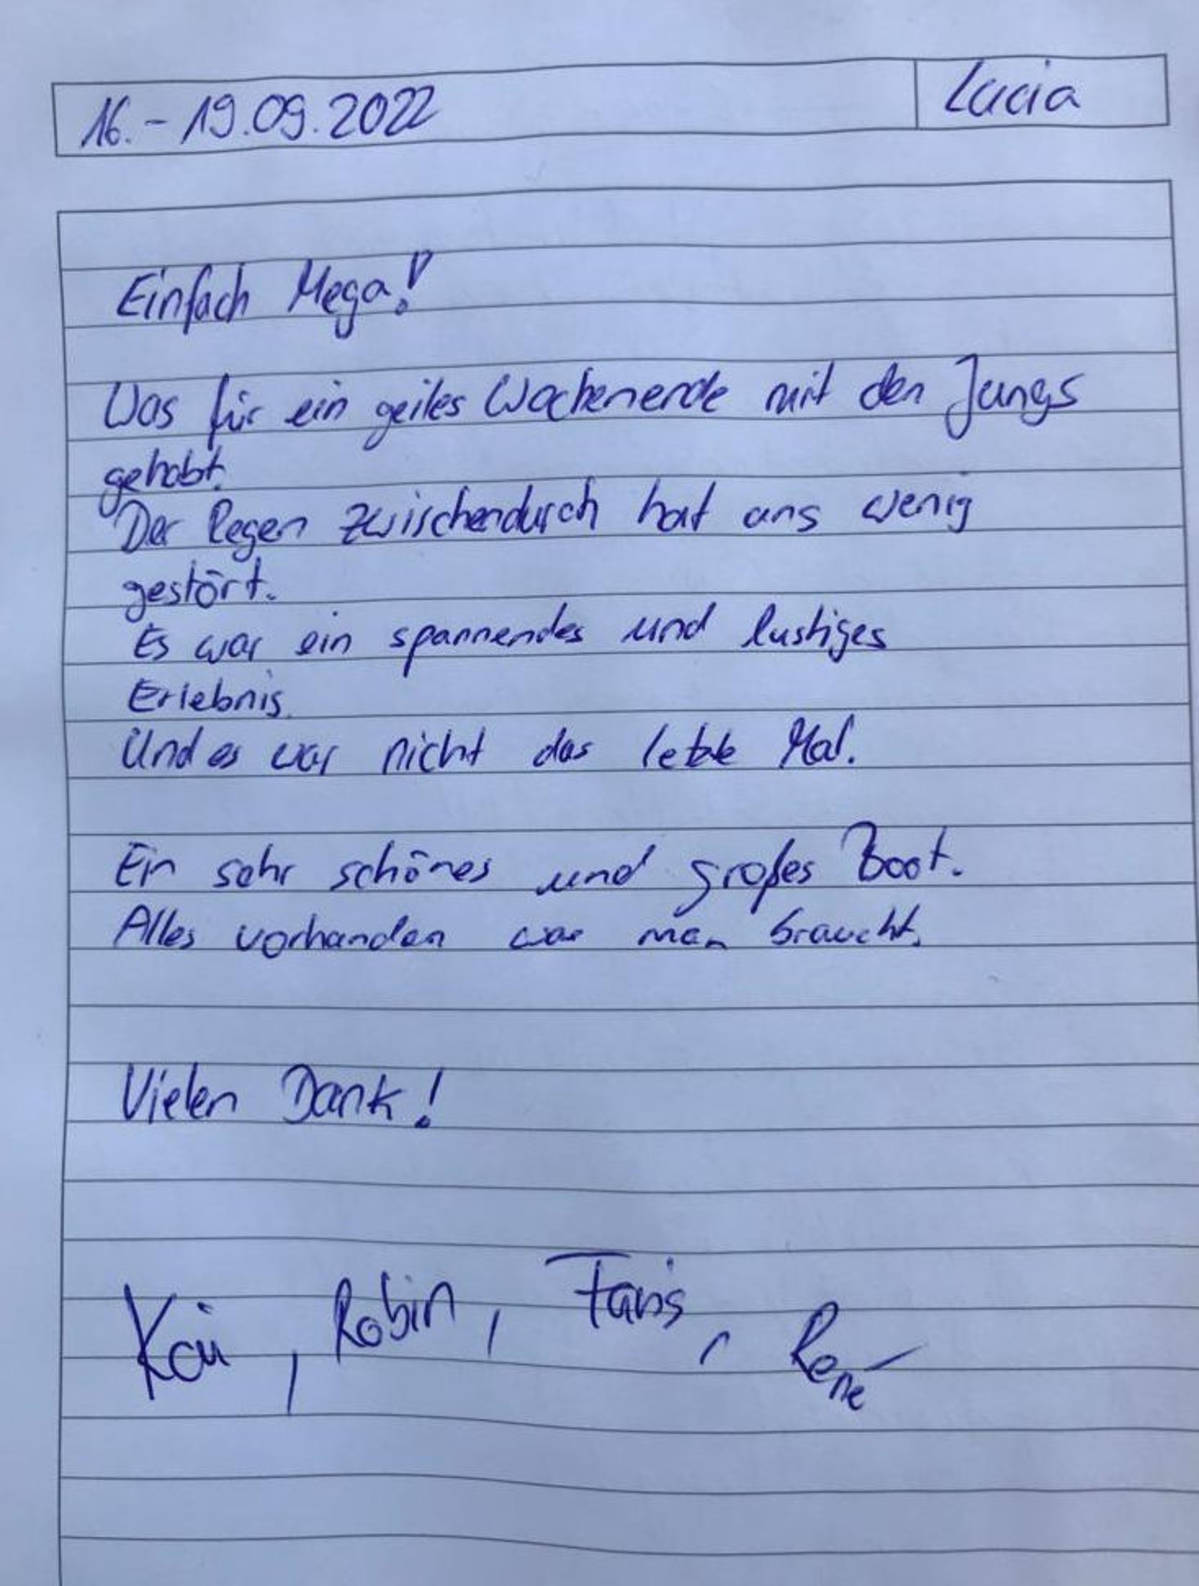 16. - 19.09.2022
Lucia
Einfach Mega!
Was für ein geiles Wochenende mit den Jungs
gehabt.
Der Regen zwischendurch hat uns wenig
gestört.
Es war ein spannendes und lustiges
Erlebnis.
Und es war nicht das letzte Mal.
Ein sehr schönes und großes Boot.
Alles vorhanden was man braucht.
Vielen Dank!
Kai, Robin, Faris, René